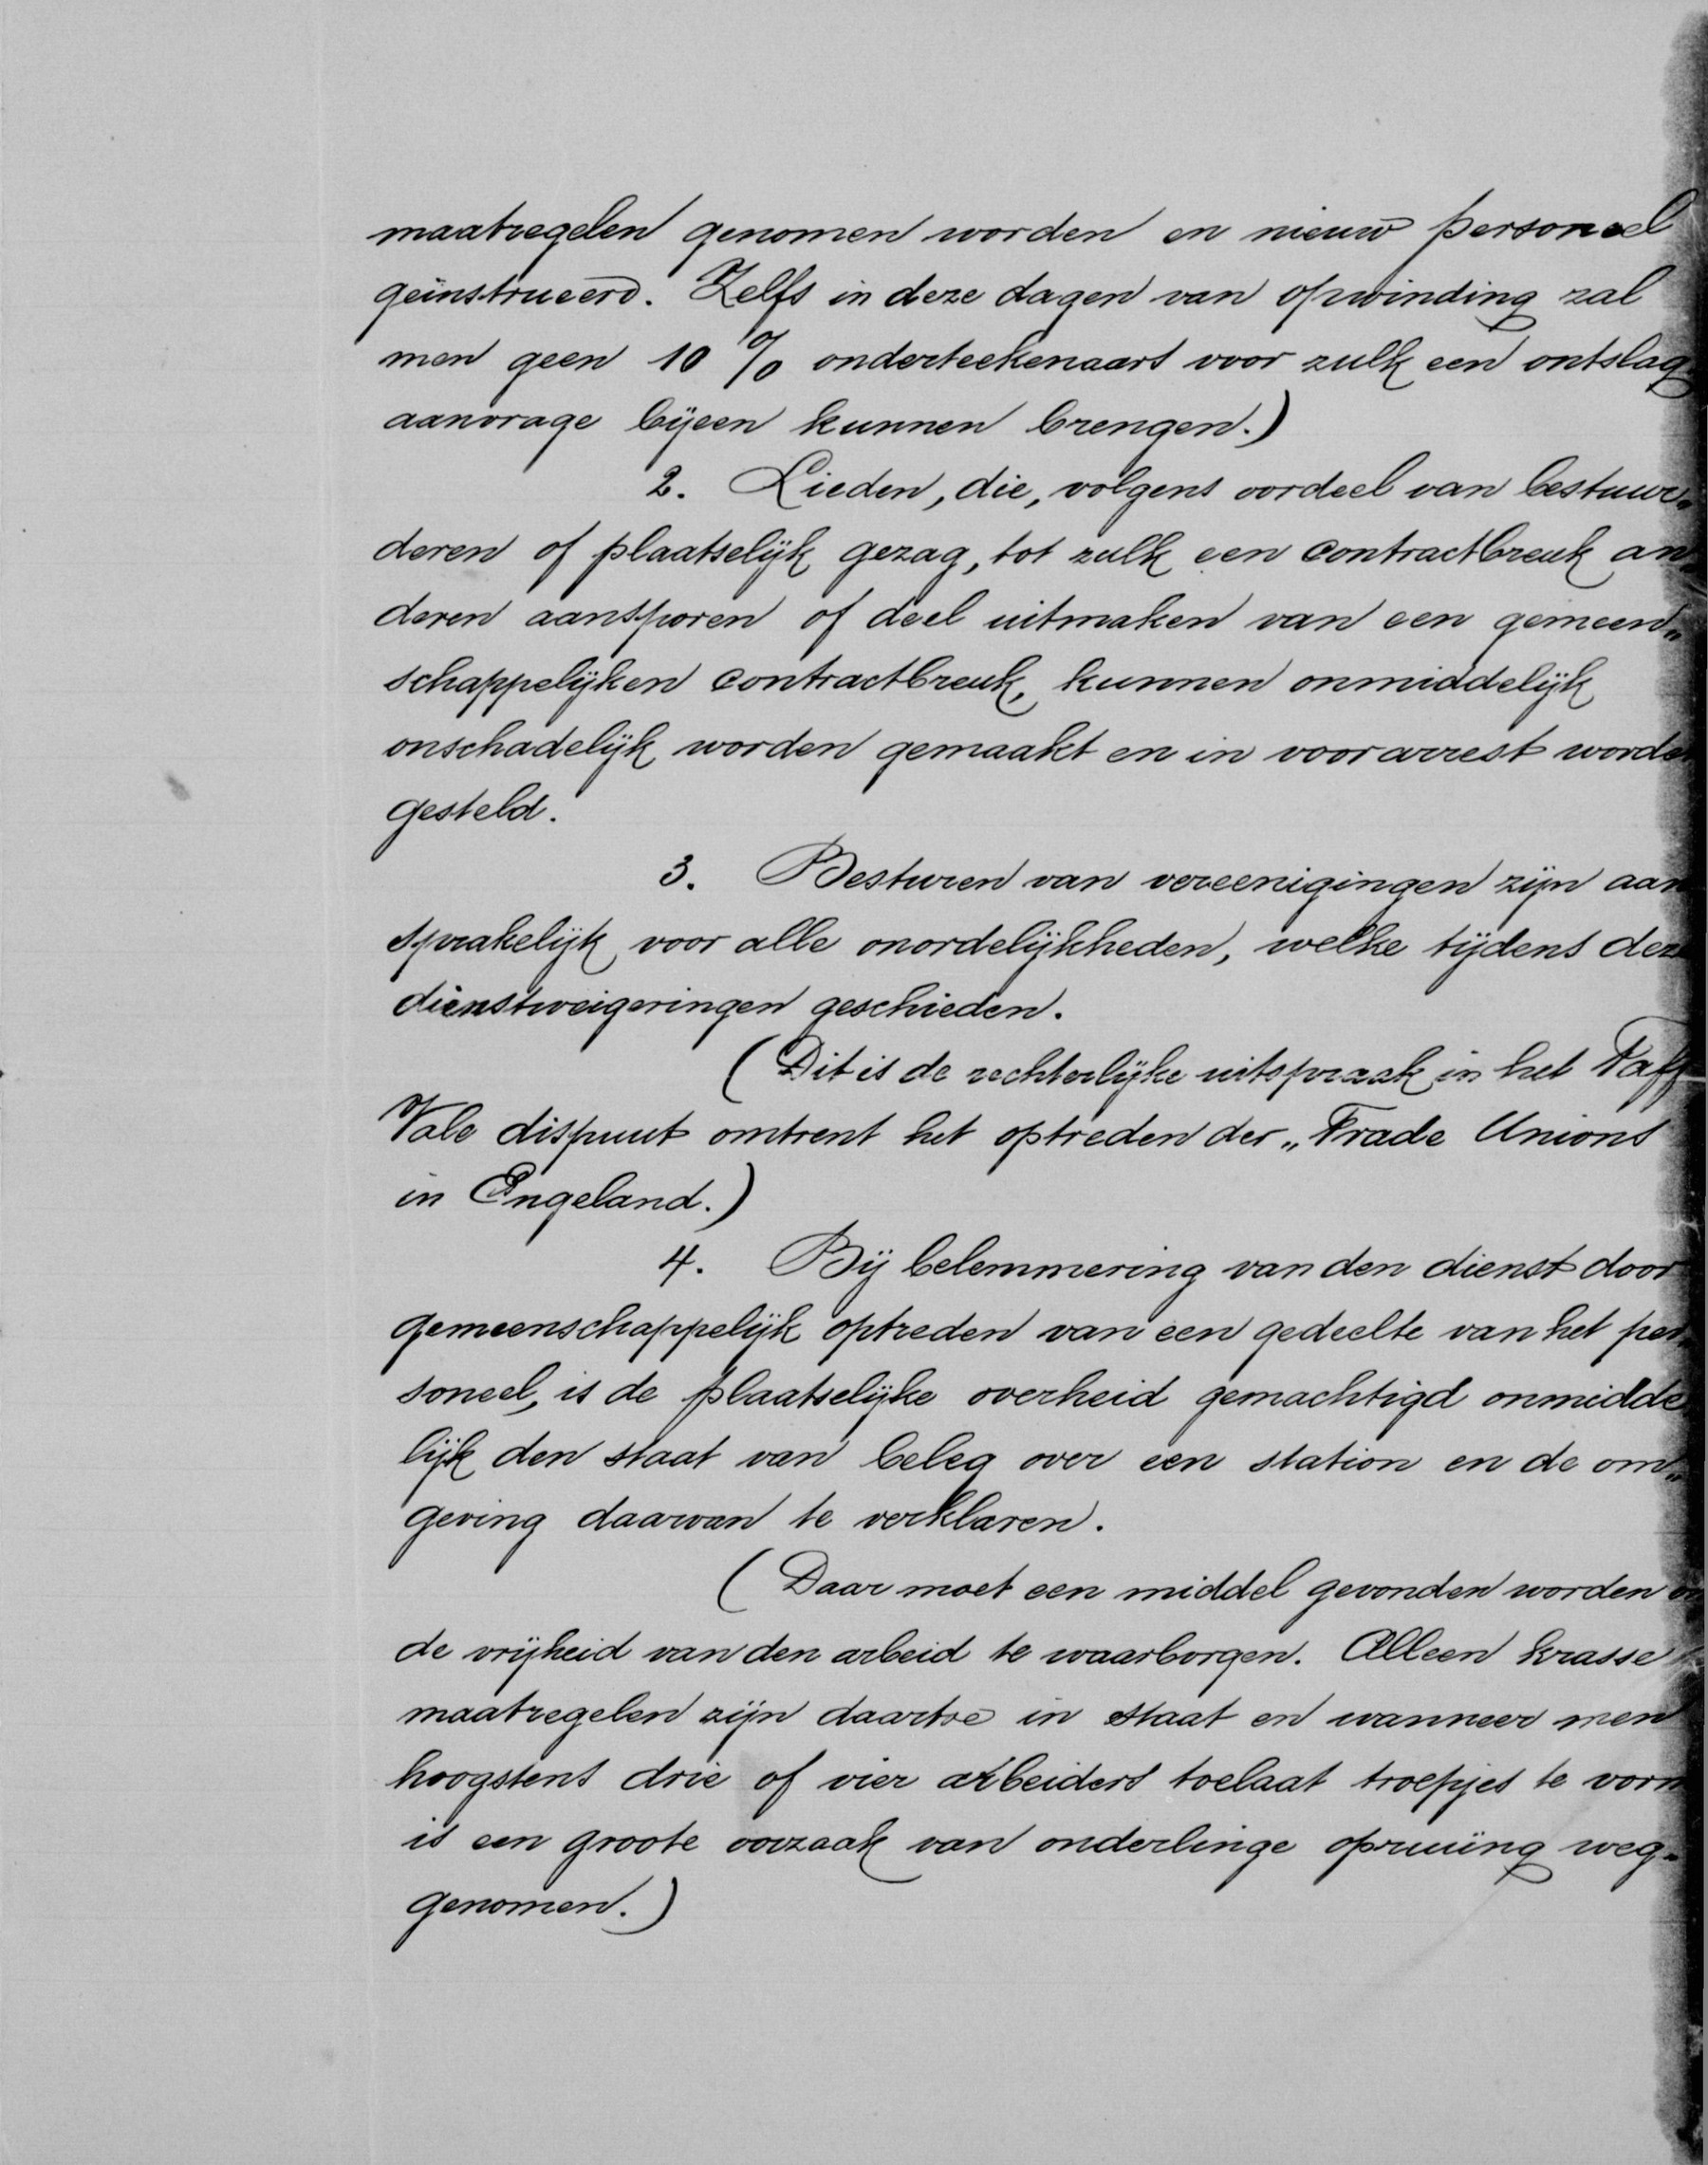 maatregelen genomen worden en nieuw personeel
geïnstrueerd. Zelfs in deze dagen van opwinding zal
men geen 10 % onderteekenaars voor zulk een ontslag
aanvrage bijeen kunnen brengen.)
2. Lieden, die, volgens oordeel van bestuur„
deren of plaatselijk gezag, tot zulk een contractbreuk an„
deren aansporen of deel uitmaken van een gemeen„
schappelijken contractbreuk, kunnen onmiddelijk
onschadelijk worden gemaakt en in voorarrest worden
gesteld.
3. Besturen van vereenigingen zijn aan
sprakelijk voor alle onordelijkheden, welke tijdens deze
dienstweigeringen geschieden.
(Dit is de rechterlijke uitspraak in het Taff
Vale dispuut omtrent het optreden der „Trade Unions
in Engeland.)
4. Bij belemmering van den dienst door
gemeenschappelijk optreden van een gedeelte van het per
soneel, is de plaatselijke overheid gemachtigd onmidde
lijk den staat van beleg over een station en de om„
geving daarvan te verklaren.
(Daar moet een middel gevonden worden
de vrijheid van den arbeid te waarborgen. Alleen krasse
maatregelen zijn daartoe in staat en wanneer men
hoogstens drie of vier arbeiders toelaat troepjes te vorm
is een groote oorzaak van onderlinge opruiing weg„
genomen.)